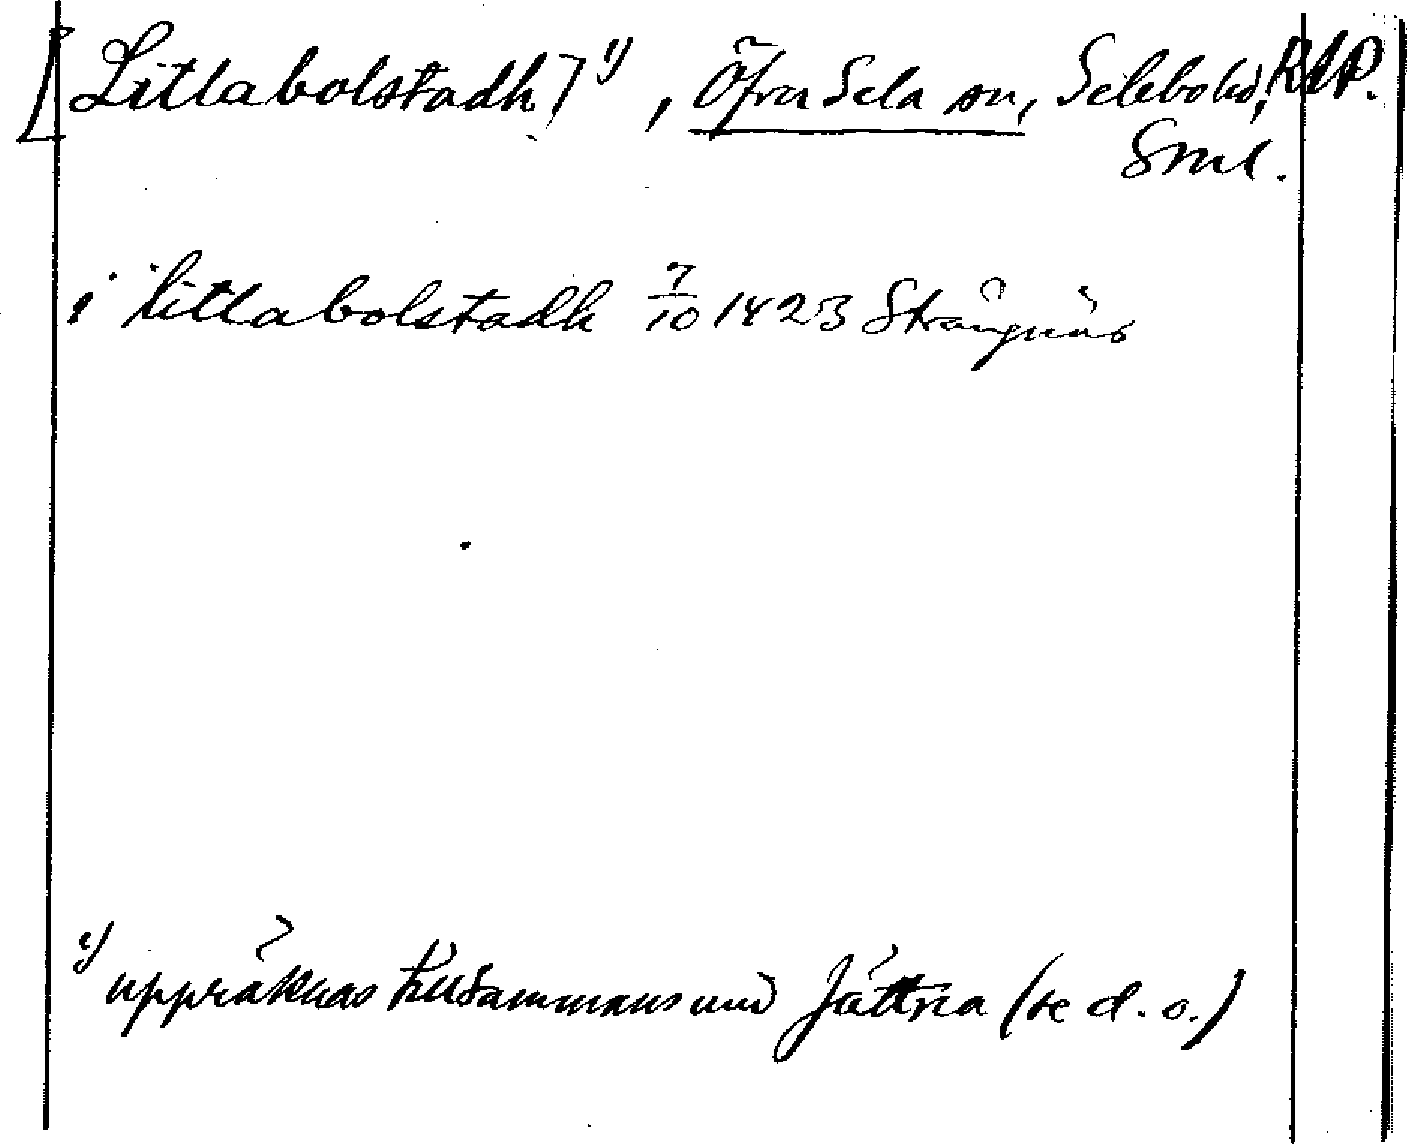 [Litlabolstadh]¹⁾, Öfra Sela sn, Selebo hd, RAP.
Sml.
i litlabolstadh 7/10 1423 Strängnäs
¹⁾ uppräknas tillsammans med Játtna (se d. o.)